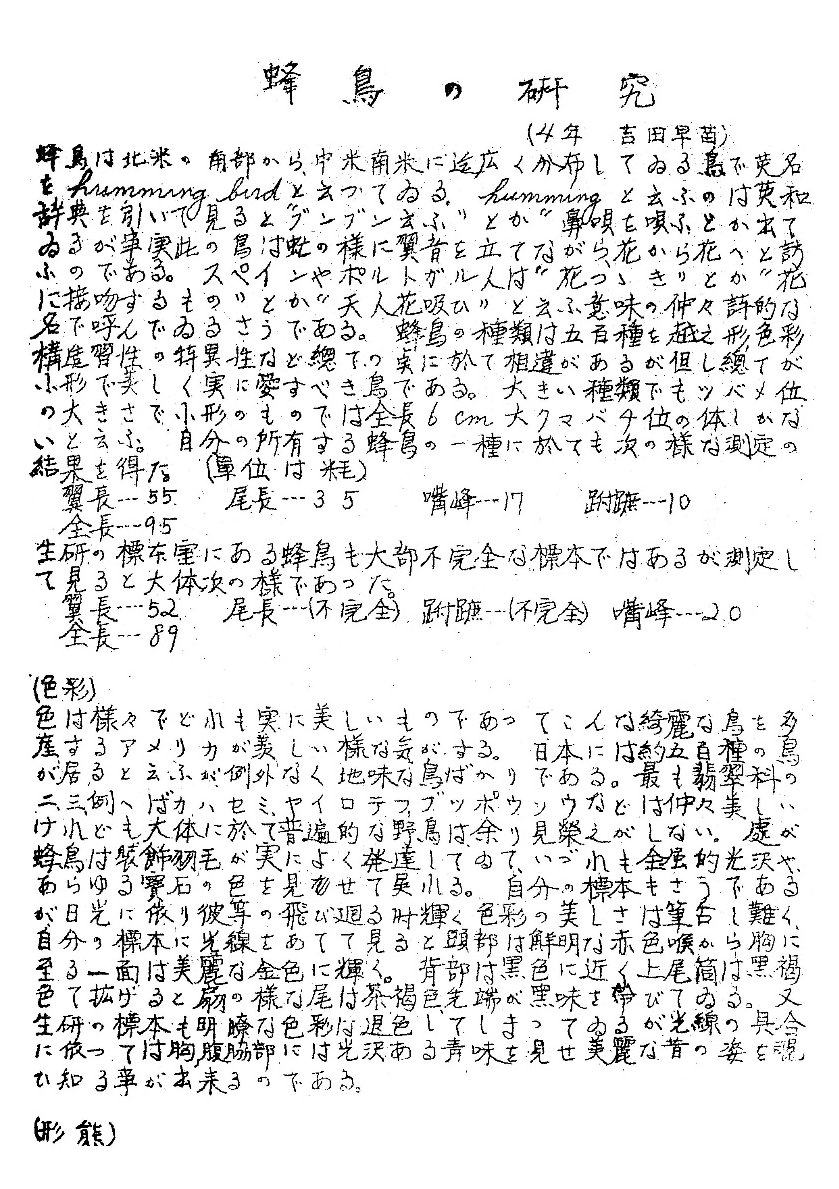 蜂鳥の研究
(4年 吉田早苗)
蜂鳥は北米の南部から、中米南米に迄広く分布してゐる鳥で英名
を humming bird と云つてゐる。 humming とは英和
辞典を引いて見ると"ブンブン云ふ"とか"鼻唄を唄ふ"とか出て
ゐるが事実此の鳥は蚊の様に翼音を立てながら花から花へと訪
ふのである。スペインやポルトガル人は"花つゝき"とか"花
に接吻するもの"とか"天人花吸ひ"と云ふ意味の仲々詩的な
名で呼んでゐるさうである。蜂鳥の種類は五百種を越え形色彩
構造習性の特異性など総ての点に於て相違があるが但し総てが
小形で美しく実に愛すべき鳥である。大きい種類でもツバメ位
の大きさで小形のものでは全長6cm大クマバチ位の体しかな
いと云ふ。自分の所有する蜂鳥の一種に於ても次の様な測定の
結果を得た。(単位は粍)
翼長---55 尾長---35 嘴峰---17 跗蹠---10
全長---95
生研の標本室にある蜂鳥も大部不完全な標本ではあるが測定し
て見ると大体次の様であつた。
翼長---52 尾長---(不完全) 跗蹠---(不完全) 嘴峰---20
全長---89
(色彩)
色は様々でどれもが実に美しいものであつてこんなに綺麗な鳥を多
産するアメリカが美しい様な気がする。日本には約五百種の鳥
が居ると云ふが例外なく地味な鳥ばかりである。最も翡翠科の
二三例へばカハセミ、ヤイロテフ、ブツポウソウなどは仲々美しい
けれども大体に於て普遍的な野鳥は余り見栄えがしない。処が
蜂鳥は装飾羽毛が実によく発達してゐて、いづれも金属的光沢や
あらゆる宝石の色を見せて呉れる。自分の標本もさうである
が日光に依り彼等の飛び廻る時輝く色彩の美しさは筆舌に難く
自分の標本に光線をあてて見ると頭部は鮮明な赤色 喉胸に
至る一面は美麗な金色に輝く。背部は黒色に近く上尾筒 は黒褐
色で拡げると扇様な尾は茶褐色先端が黒味帯びてゐる。又
生研の標本も明瞭な色彩は退色してしまつてゐるが光線の具合
に依つては胸,腹,脇部には光沢ある青味を見せ美麗な昔の姿を覗
ひ知る事が出来るのである。
(形態)